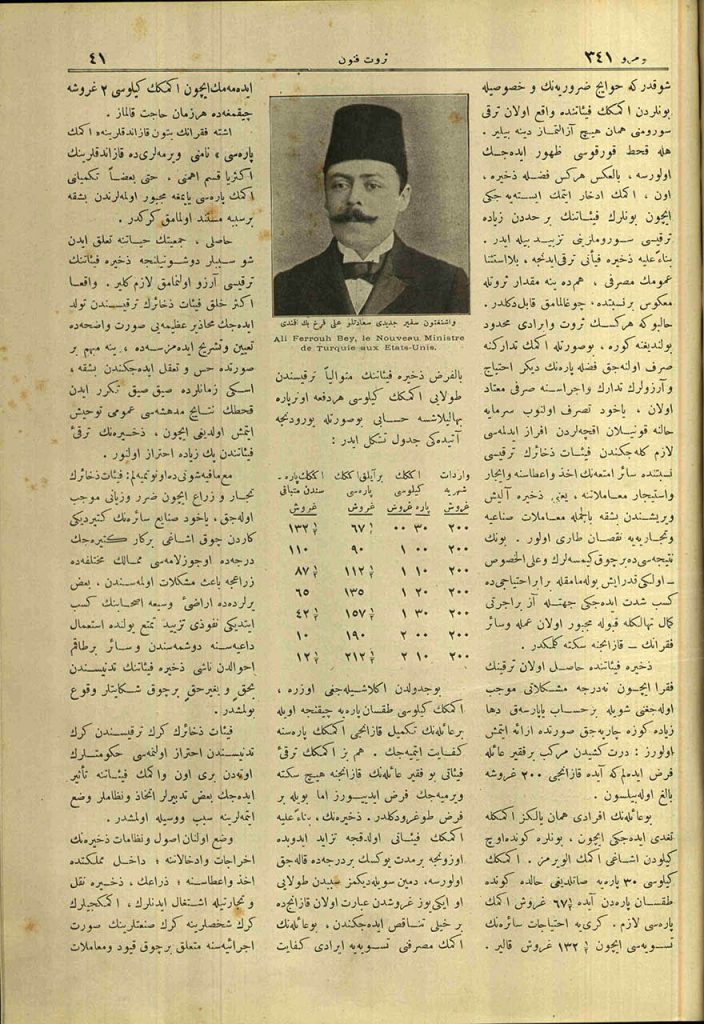 ٤١
ثروت فنون
نومرو ٣٤١
شوقدر كه حوايج ضروريه‌نك و خصوصيله
بونلردن اكمكك فيئاتنده واقع اولان ترقى
سورومنى همان هيچ آزالتماز دينه بيلير .
هله قحط قورقوسى ظهور ايده‌جك
اولورسه ، بالعكس هركس فضله ذخيره ،
اون ، اكمك ادخار ايتمك ايسته‌يه‌جكى
ايچون بونلرك فيئاتنك برحددن زياده
ترقيسى سوروملرينى تزييد بيله ايدر .
بناءً عليه ذخيره فيأتى ترقى ايدنجه ، بلااستثنا
عمومك مصرفى ، هم‌ده ينه مقدار ثروتله
معكوس برنسبتده ، چوغالمامق قابل دكلدر .
حالبوكه هركسك ثروت وايرادى محدود
بولنديغنه كوره ، بوصورتله اكمك تداركنه
صرف اولنه‌جق فضله پاره‌نك ديكر احتياج
وآرزولرك تدارك واجراسنه صرفى معتاد
اولان ، ياخود تصرف اولنوب سرمايه
حالنه قونيلان اقچه‌لردن افراز ايدلمسى
لازم كله‌جكندن فيئات ذخائرك ترقيسى
نسبتنده سائر امتعه‌نك اخذ واعطاسنه وايجار
واستيجار معاملاتنه ، يعنى ذخيره آليش
ويريشندن بشقه بالجمله معاملات صناعيه
وتجاريه‌يه نقصان طارى اولور . بونك
نتيجه‌سى ده برچوق كيمسه‌لرك وعلى الخصوص
ـ اولكى قدر ايش بوله‌مامقله برابر احتياجى ده
كسب شدت ايده‌جكى جهتله آز براجرتى
كمال تهالكله قبوله مجبور اولان عمله وسائر
فقرانك ـ قازانجنه سكته كلمكدر .
ذخيره فيئاتنده حاصل اولان ترقينك
فقرا ايچون نه‌درجه مشكلاتى موجب
اوله‌جغنى شويله برحساب ياپارسه‌ق دها
زياده كوزه چارپه‌جق صورتده ارائه ايتمش
اولورز : درت كشيدن مركب برفقير عائله
فرض ايده‌لم كه آيده قازانجى ٢٠٠ غروشه
بالغ اوله‌بيلسون .
بوعائله‌نك افرادى همان يالكز اكمكله
تغدى ايده‌جكى ايچون ، بونلره كونده اوچ
كيلودن اشاغى اكمك الويرمز . اكمكك
كيلوسى ٣٠ پاره‌يه صاتلديغى حالده كونده
طقسان پاره‌دن آيده ٦٧½ غروش اكمك
پاره‌سى لازم . كرى‌يه احتياجات سائره‌نك
تسويه‌سى ايچون ١٣٢½ غروش قالير .
واشنغتون سفير جديدى سعادتلو على فرخ بك افندى
Ali Ferrouh Bey, le Nouveau Ministre
de Turquie aux Etats-Unis.
بالفرض ذخيره فيئاتنك متوالياً ترقيسندن
طولايى اكمكك كيلوسى هردفعه اونرپاره
بهاليلاشسه حسابى بوصورتله يورودنجه
آتيده‌كى جدول تشكل ايدر :
واردات اكمكك برآيلق اكمك اكمك پاره‌-
شهريه كيلوسى پاره‌سى سندن متباقى
غروش پاره غروش غروش غروش
٢٠٠ ٣٠ ٠٠ ٦٧½ ١٣٢½
٢٠٠ ٠٠ ١ ٩٠ ١١٠
٢٠٠ ١٠ ١ ١١٢½ ٨٧½
٢٠٠ ٢٠ ١ ١٣٥ ٦٥
٢٠٠ ٣٠ ١ ١٥٧½ ٤٢½
٢٠٠ ٠٠ ٢ ١٩٠ ١٠
٢٠٠ ١٠ ٢ ٢١٢½ ١٢½
بوجدولدن اكلاشيله‌جغى اوزره ،
اكمكك كيلوسى طقسان پاره‌يه چيقنجه اويله
برعائله‌نك تكميل قازانجى اكمك پاره‌سنه
كفايت ايتميه‌جك . هم بز اكمكك ترقئ
فيئاتى بو فقير عائله‌نك قازانجنه هيچ سكته
ويرميه‌جك فرض ايدييورز اما بويله بر
فرض طوغرو دكلدر . ذخيره‌نك ، بناءً عليه
اكمكك فيئاتى اولدقجه تزايد ايدوبده
اوزونجه برمدت يوكسك بردرجه‌ده قاله‌جق
اولورسه ، دمين سويله‌ديكمز سببدن طولايى
او ايكى‌يوز غروشدن عبارت اولان قازانج‌ده
بر خيلى تناقص ايده‌جكندن ، بوعائله‌نك
اكمك مصرفنى تسويه‌يه ايرادى كفايت
ايده‌مه‌مك ايچون اكمكك كيلوسى ٢ غروشه
چيقمغه‌ده هرزمان حاجت قالماز .
اشته فقرانك بتون قازاندقلرينه « اكمك
پاره‌سى » نامنى ويرمه‌لرى ده قازاندقلرينك
اكثريا قسم اهمنى ، حتى بعضاً تكميلنى
اكمك پاره‌سى ياپمغه مجبور اولمه‌لرندن بشقه
برسببه مستند اولمامق كركدر .
حاصلى ، جمعيتك حياتنه تعلق ايدن
شو سببلر دوشونيلنجه ذخيره فيئاتنك
ترقيسى آرزو اولنمامق لازم كلير . واقعا
اكثر خلق فيئات ذخائرك ترقيسندن تولد
ايده‌جك محاذير عظيمه‌يى صورت واضحه‌ده
تعيين وتشريح ايده‌مزسه‌ده ، ينه مبهم بر
صورتده حس و تعقل ايده‌جكندن بشقه ،
اسكى زمانلرده صيق صيق تكرر ايدن
قحطلك نتايج مدهشه‌سى عمومى توحيش
ايتمش اولديغى ايچون ، ذخيره‌نك ترقئ
فيئاتندن پك زياده احتراز اولنور .
مع مافيه شونى ده اونوتميه‌لم : فيئات ذخائرك
تجار و زراع ايچون ضرر وزيانى موجب
اوله‌جق ، ياخود صنايع سائره‌نك كتيرديكى
كاردن چوق اشاغى بركار كتيره‌جك
درجه‌ده اوجوزلامه‌سى ممالك مختلفه‌ده
زراعتجه باعث مشكلات اولمه‌سندن ، بعض
يرلرده‌ده اراضئ وسيعه اصحابنك كسب
ايتديكى نفوذى تزييد تمتع يولنده استعمال
داعيه‌سنه دوشمه‌سندن و سائر برطاقم
احوالدن ناشى ذخيره فيئاتنك تدنيسندن
بحق و بغيرحق برچوق شكايتلر وقوع
بولمشدر .
فيئات ذخائرك كرك ترقيسندن كرك
تدنيسندن احتراز اولنمه‌سى حكومتلرك
اوته‌دن برى اون واكمك فيئاتنه تأثير
ايده‌جك بعض تدبيرلر اتخاذ ونظاملر وضع
ايتمه‌لرينه سبب ووسيله اولمشدر .
وضع اولنان اصول و نظامات ذخيره‌نك
اخراجات وادخالاتنه ؛ داخل مملكتده
اخذ واعطاسنه ؛ ذراعك ، ذخيره نقل
و تجارتيله اشتغال ايدنلرك ، اكمكجيلرك
كرك شخصلرينه كرك صنعتلرينك صورت
اجرائيه‌سنه متعلق برچوق قيود ومعاملات